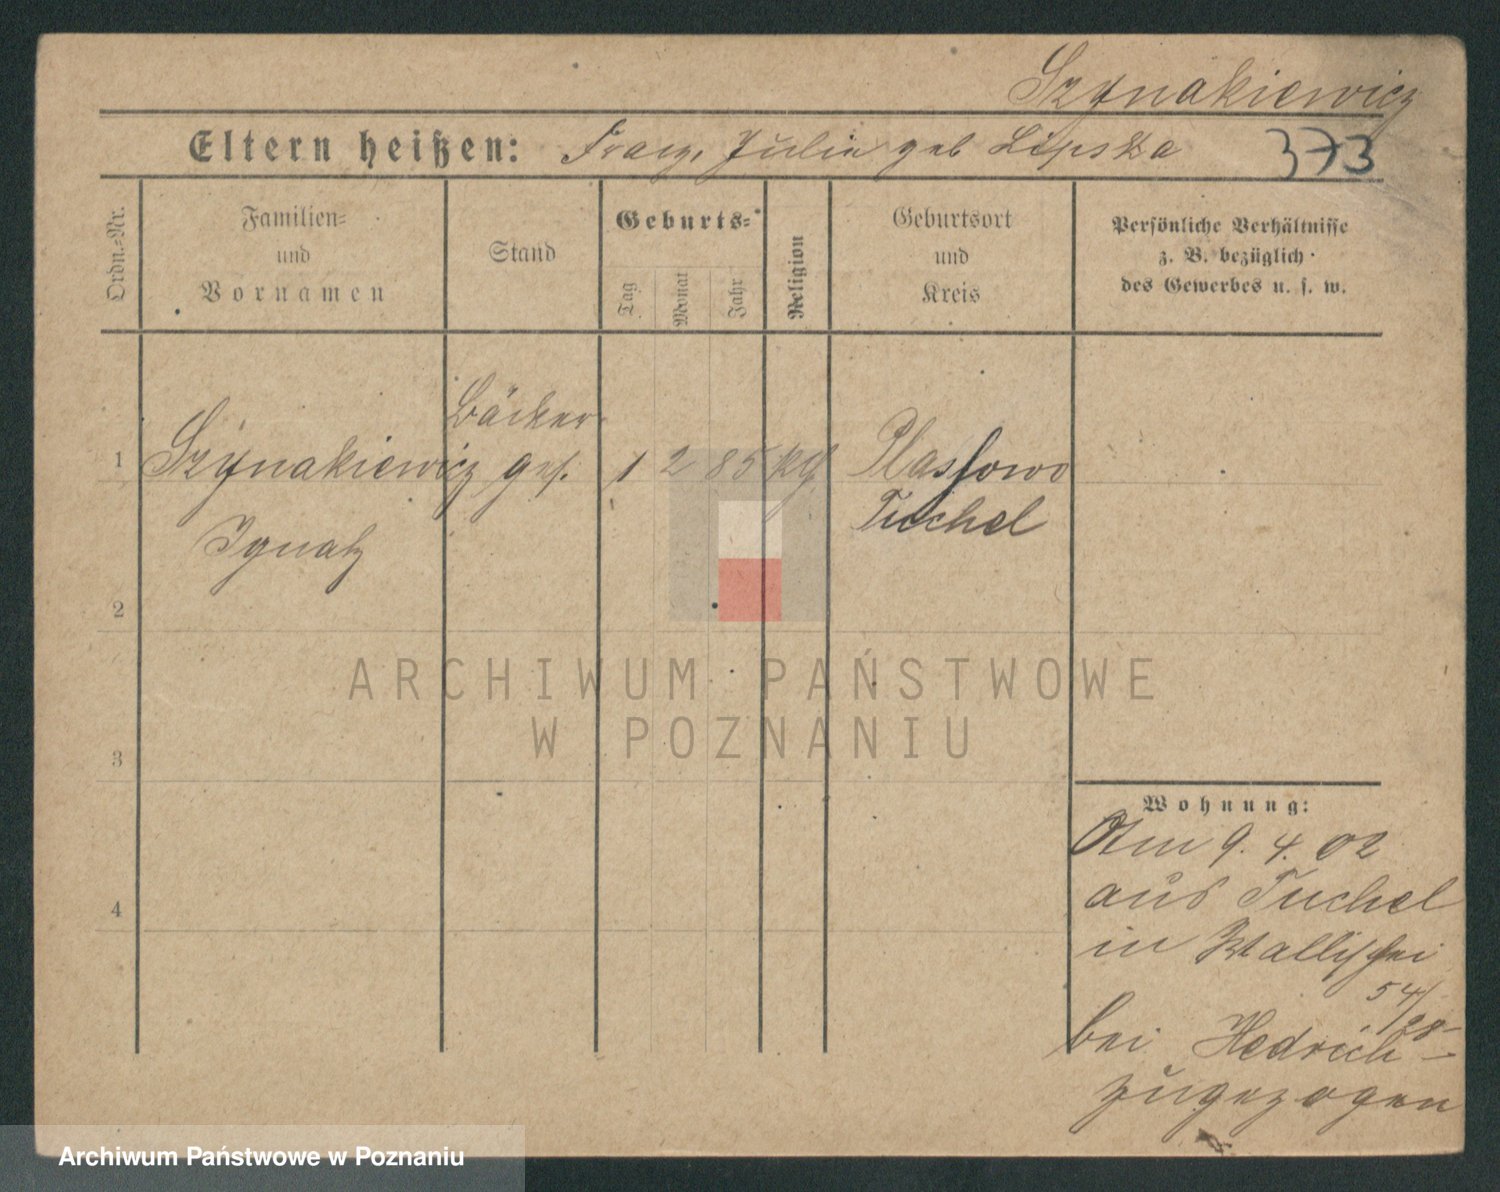 Szynakiewicz
Eltern heißen: Franz, Julie geb Lipska 373
Ordn.-Nr.
Familien-
und
Vornamen
Stand
Geburts-
Tag
Monat
Jahr
Religion
Geburtsort
und
Kreis
Persönliche Verhältnisse
z. B. bezüglich
des Gewerbes u. s. w.
Bäcker
1 Szynakiewicz ges. 1 2 85 kg Plassowo
Ignatz Tuchel
2
ARCHIWUM PAŃSTWOWE
W POZNANIU
3
Wohnung:
Am 9. 4. 02
aus Tuchel
4
in Wallischei
54/28
bei Hedrich
zugezogen
Archiwum Państwowe w Poznaniu